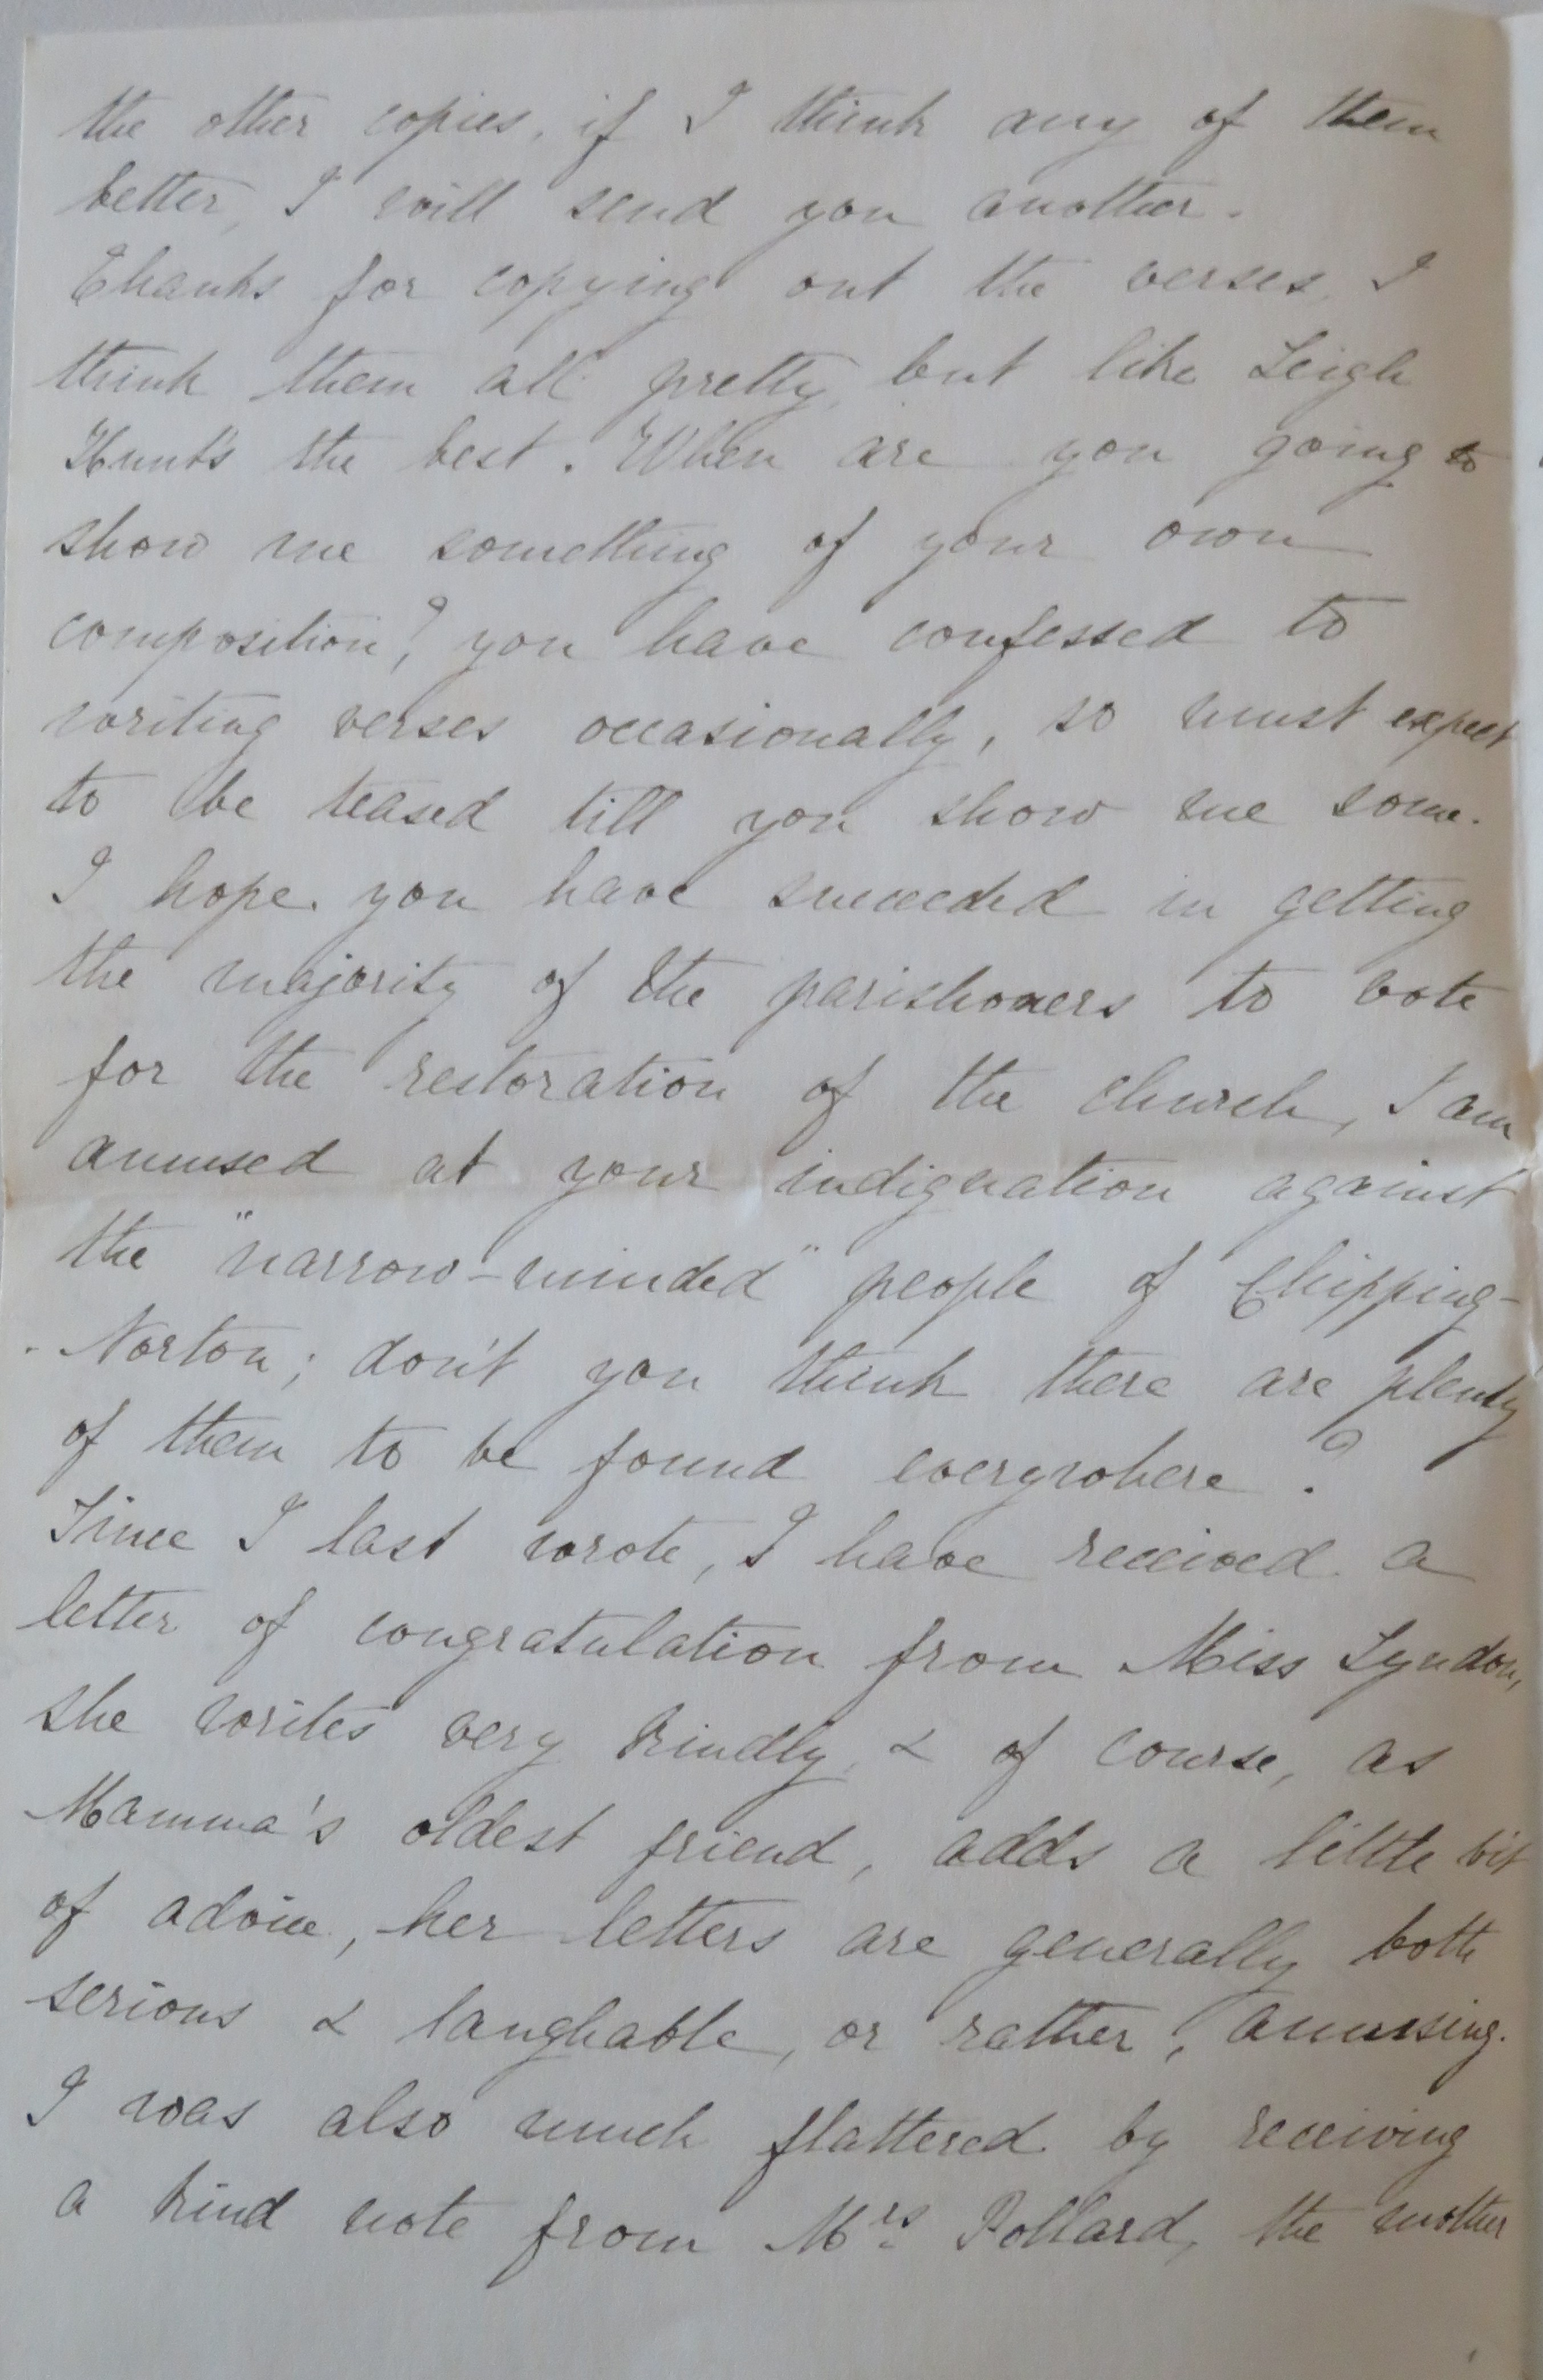 the other copies, if I think any of them
better, I will send you another.
Thanks for copying out the verses, I
think them all pretty, but like Leigh
Hunt's the best. When are you going to
show me something of your own
composition?, you have confessed to
writing verses occasionally, so must expect
to be teased till you show me some.
I hope you have succeeded in getting
the majority of the parishoners to vote
for the restoration of the church, I am
amused at your indignation against
the "narrow-minded" people of Chipping-
-Norton; don't you think there are plenty
of them to be found everywhere?
Since I last wrote, I have received a
letter of congratulation from Miss Lyndon,
she writes very kindly, & of course, as
Mamma's oldest friend, adds a little bit
of advice, her letters are generally both
serious & laughable, or rather, amusing.
I was also much flattered by receiving
a kind note from Mrs. Pollard, the mother